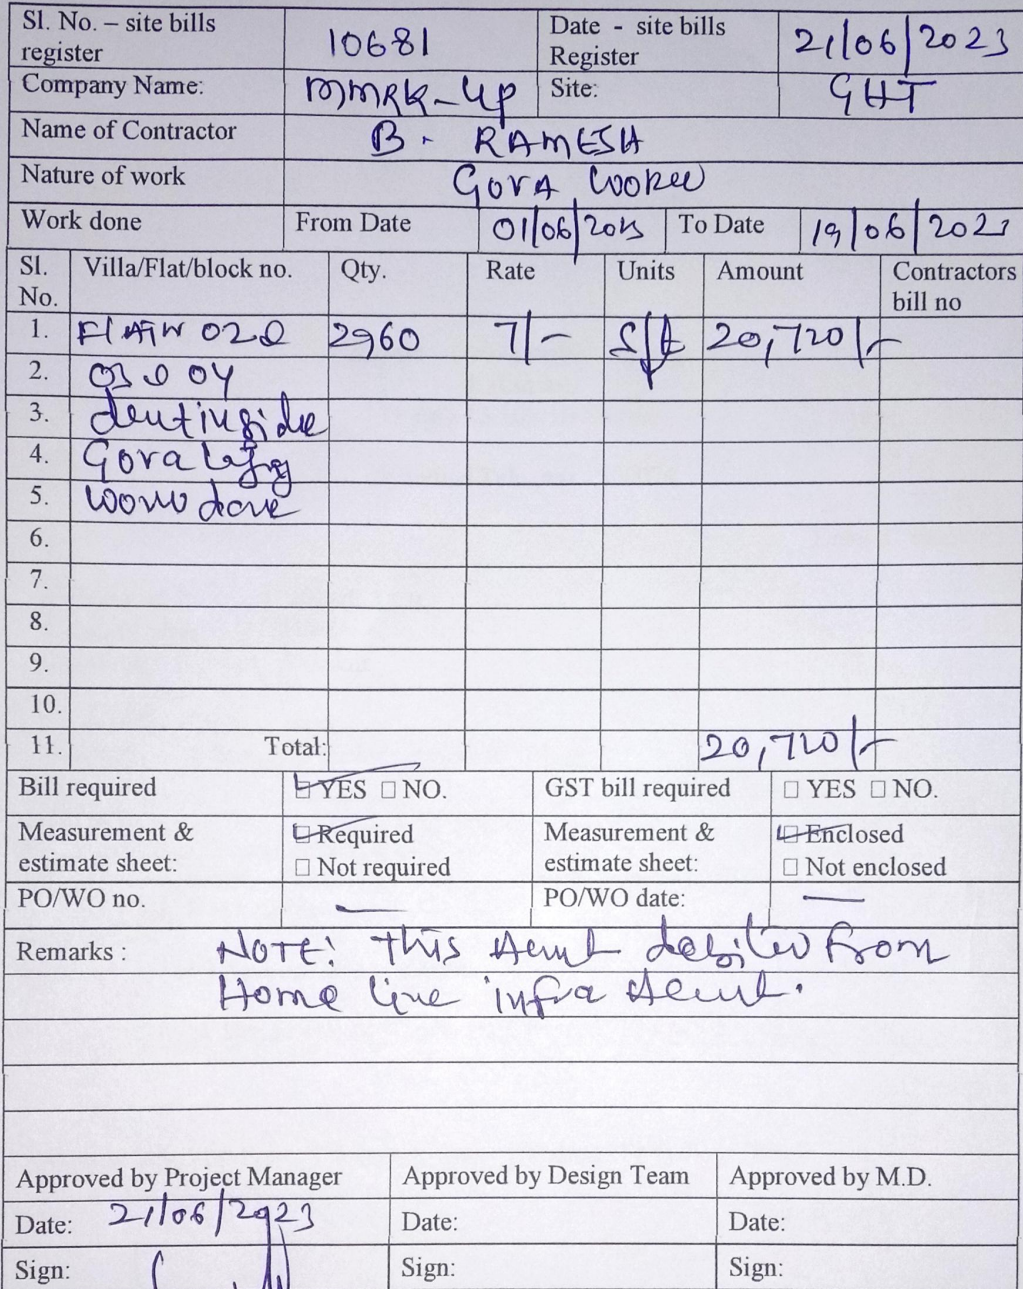 Sl. No. – site bills register 10681 Date - site bills Register 21/06/2023
Company Name: MMRK-UP Site: GHT
Name of Contractor B. RAMESH
Nature of work GOVA
Work done From Date 01/06/2023 To Date 19/06/2023
Sl. No. Villa/Flat/block no. Qty. Rate Units Amount Contractors bill no
1. 2960 7/- Sft 20,720/-
2. 03 & 04
3.
4. Gova
5. done
6.
7.
8.
9.
10.
11. Total: 20,720/-
Bill required ☐ YES ☐ NO. GST bill required ☐ YES ☐ NO.
Measurement & estimate sheet: ☐ Required ☐ Not required Measurement & estimate sheet: ☐ Enclosed ☐ Not enclosed
PO/WO no. — PO/WO date: —
Remarks : NOTE: This debited from
Home line infra
Approved by Project Manager Approved by Design Team Approved by M.D.
Date: 21/06/2023 Date: Date:
Sign: Sign: Sign: